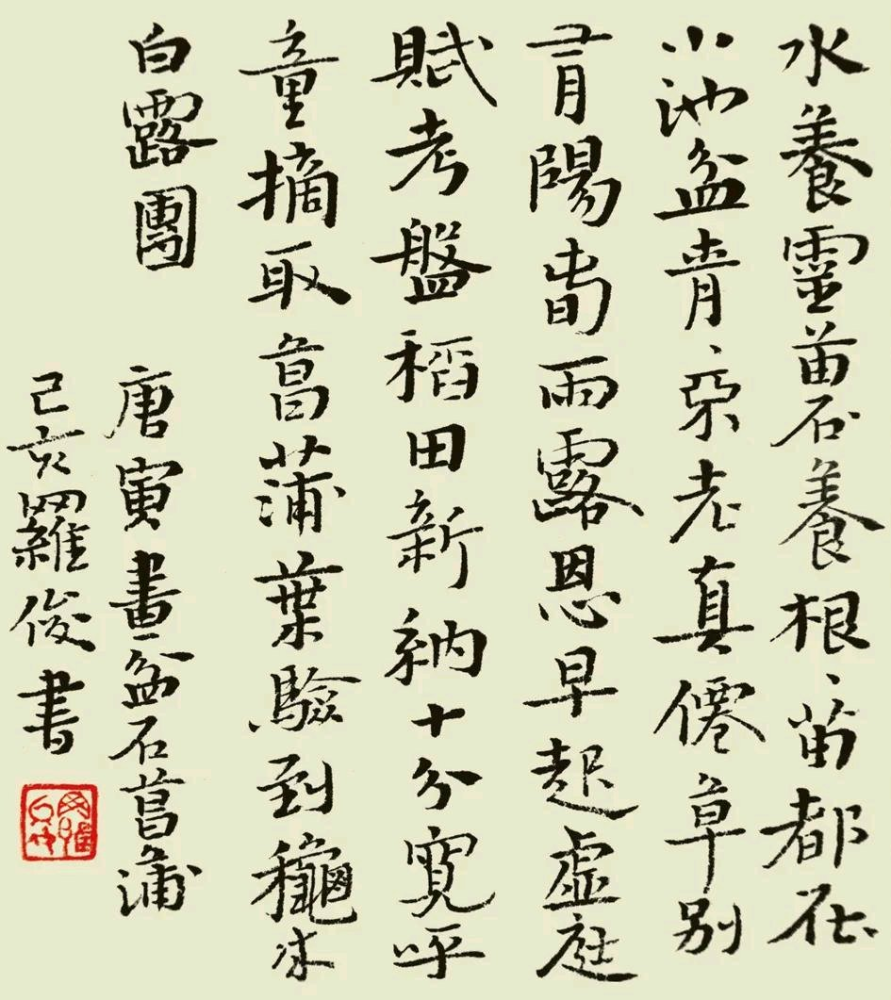 水養靈苗石養根、苗都在
小池盆青、不老真僊草別
有陽春雨露恩早起虛庭
賦考盤稻田新納十分寬呼
童摘取菖蒲葉驗到龝來
白露團 唐寅畫盆石菖蒲
己亥羅俊書